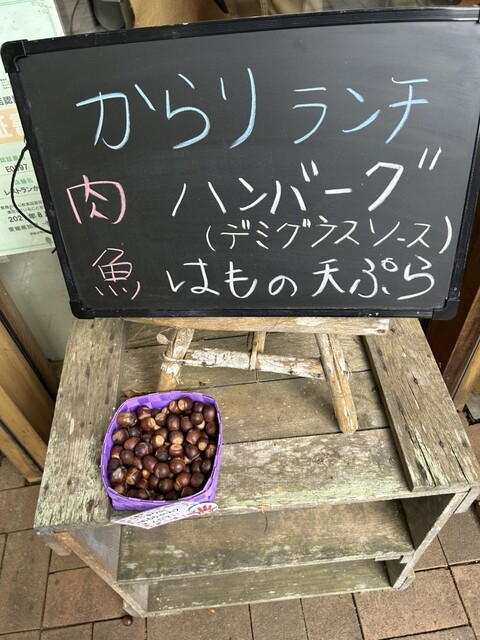 からり ランチ
肉 ハンバーグ
(デミグラスソース)
魚 はもの天ぷら